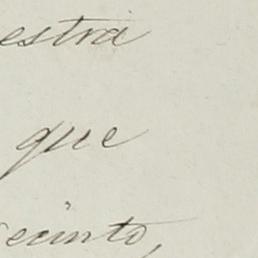 estra
que
ecinto,